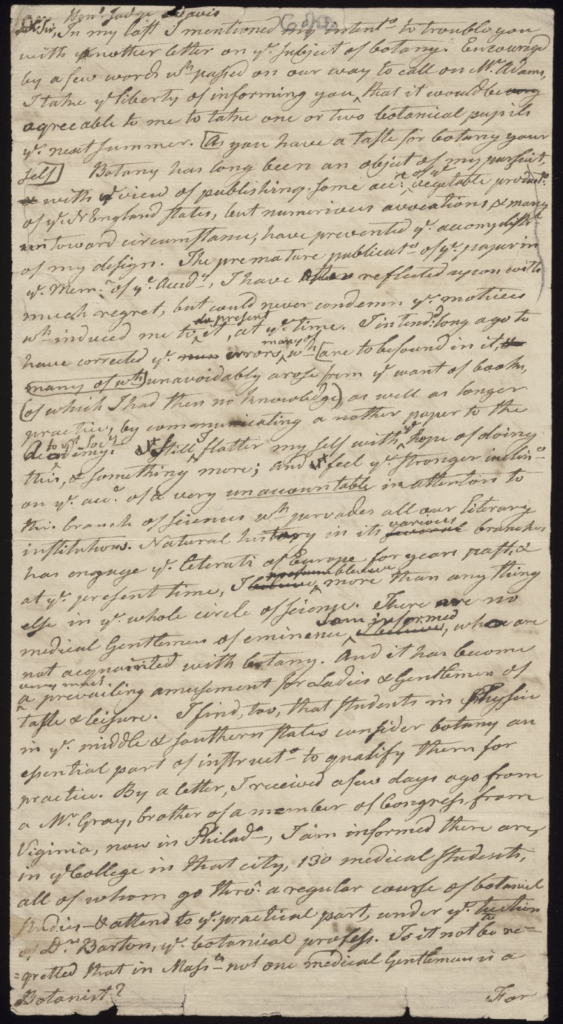 Hon. Judge Davis
Dr. Sir, In my last I mentioned my intentn. to trouble you
with another letter on ye. subject of botany. Encouraged
by a few words wh. passed on our way to call on Mr. Adams,
I take ye liberty of informing you, that it would be very
agreeable to me to take one or two botanical pupils
ye. next summer. [As you have a taste for botany your
self] Botany has long been an object of my pursuit,
with a view of publishing some acct. of ye. vegetable product.
of ye. N England states, but numerious avocations, & many
untoward circumstance, have prevented ye. accomplishmt.
of my design. The premature publicatn. of ye. paper in
ye. Memr. of ye. Acady., I have often reflected upon with
much regret, but could never condemn ye. motives
wh induced me to present it, at ye. time. I intended long ago to
have corrected ye. errors, many of wh [are to be found in it,
many of wh] unavoidably arose from ye want of books,
(of which I had then no knowledge) as well as longer
practice, by communicating a nother paper to the
Academy. to ye. Socy. I still flatter my self with ye. hope of doing
this, & something more; and I feel ye. stronger inclin-
on ye. acct. of a very unaccountable inattention to
this branch of science wh. pervades all our literary
institutions. Natural history in its various branches
has engage ye. literati of Europe for years past, &
at ye. present time, I believe, more than any thing
else in ye. whole circle of science. There are no
medical Gentlemen of eminence, I am informed, who are
not acquainted with botany. And it has become
a very much prevailing amusement for Ladies & Gentlemen of
taste & leisure. I find, too, that students in Physic
in ye. middle & southern states consider botany an
essential part of instructn. to qualify them for
practice. By a letter, I received a few days ago from
a Mr. Gray, brother of a member of Congress from
Viginia, now in Philada., I am informed there are,
in ye College in that city, 130 medical students,
all of whom go thro' a regular course of botanical
studies & attend to ye. practical part, under ye. tuition
of Dr. Barton, ye. botanical profess. Is it not be re-
=gretted that in Masss. not one medical Gentleman is a
Botanist?
For